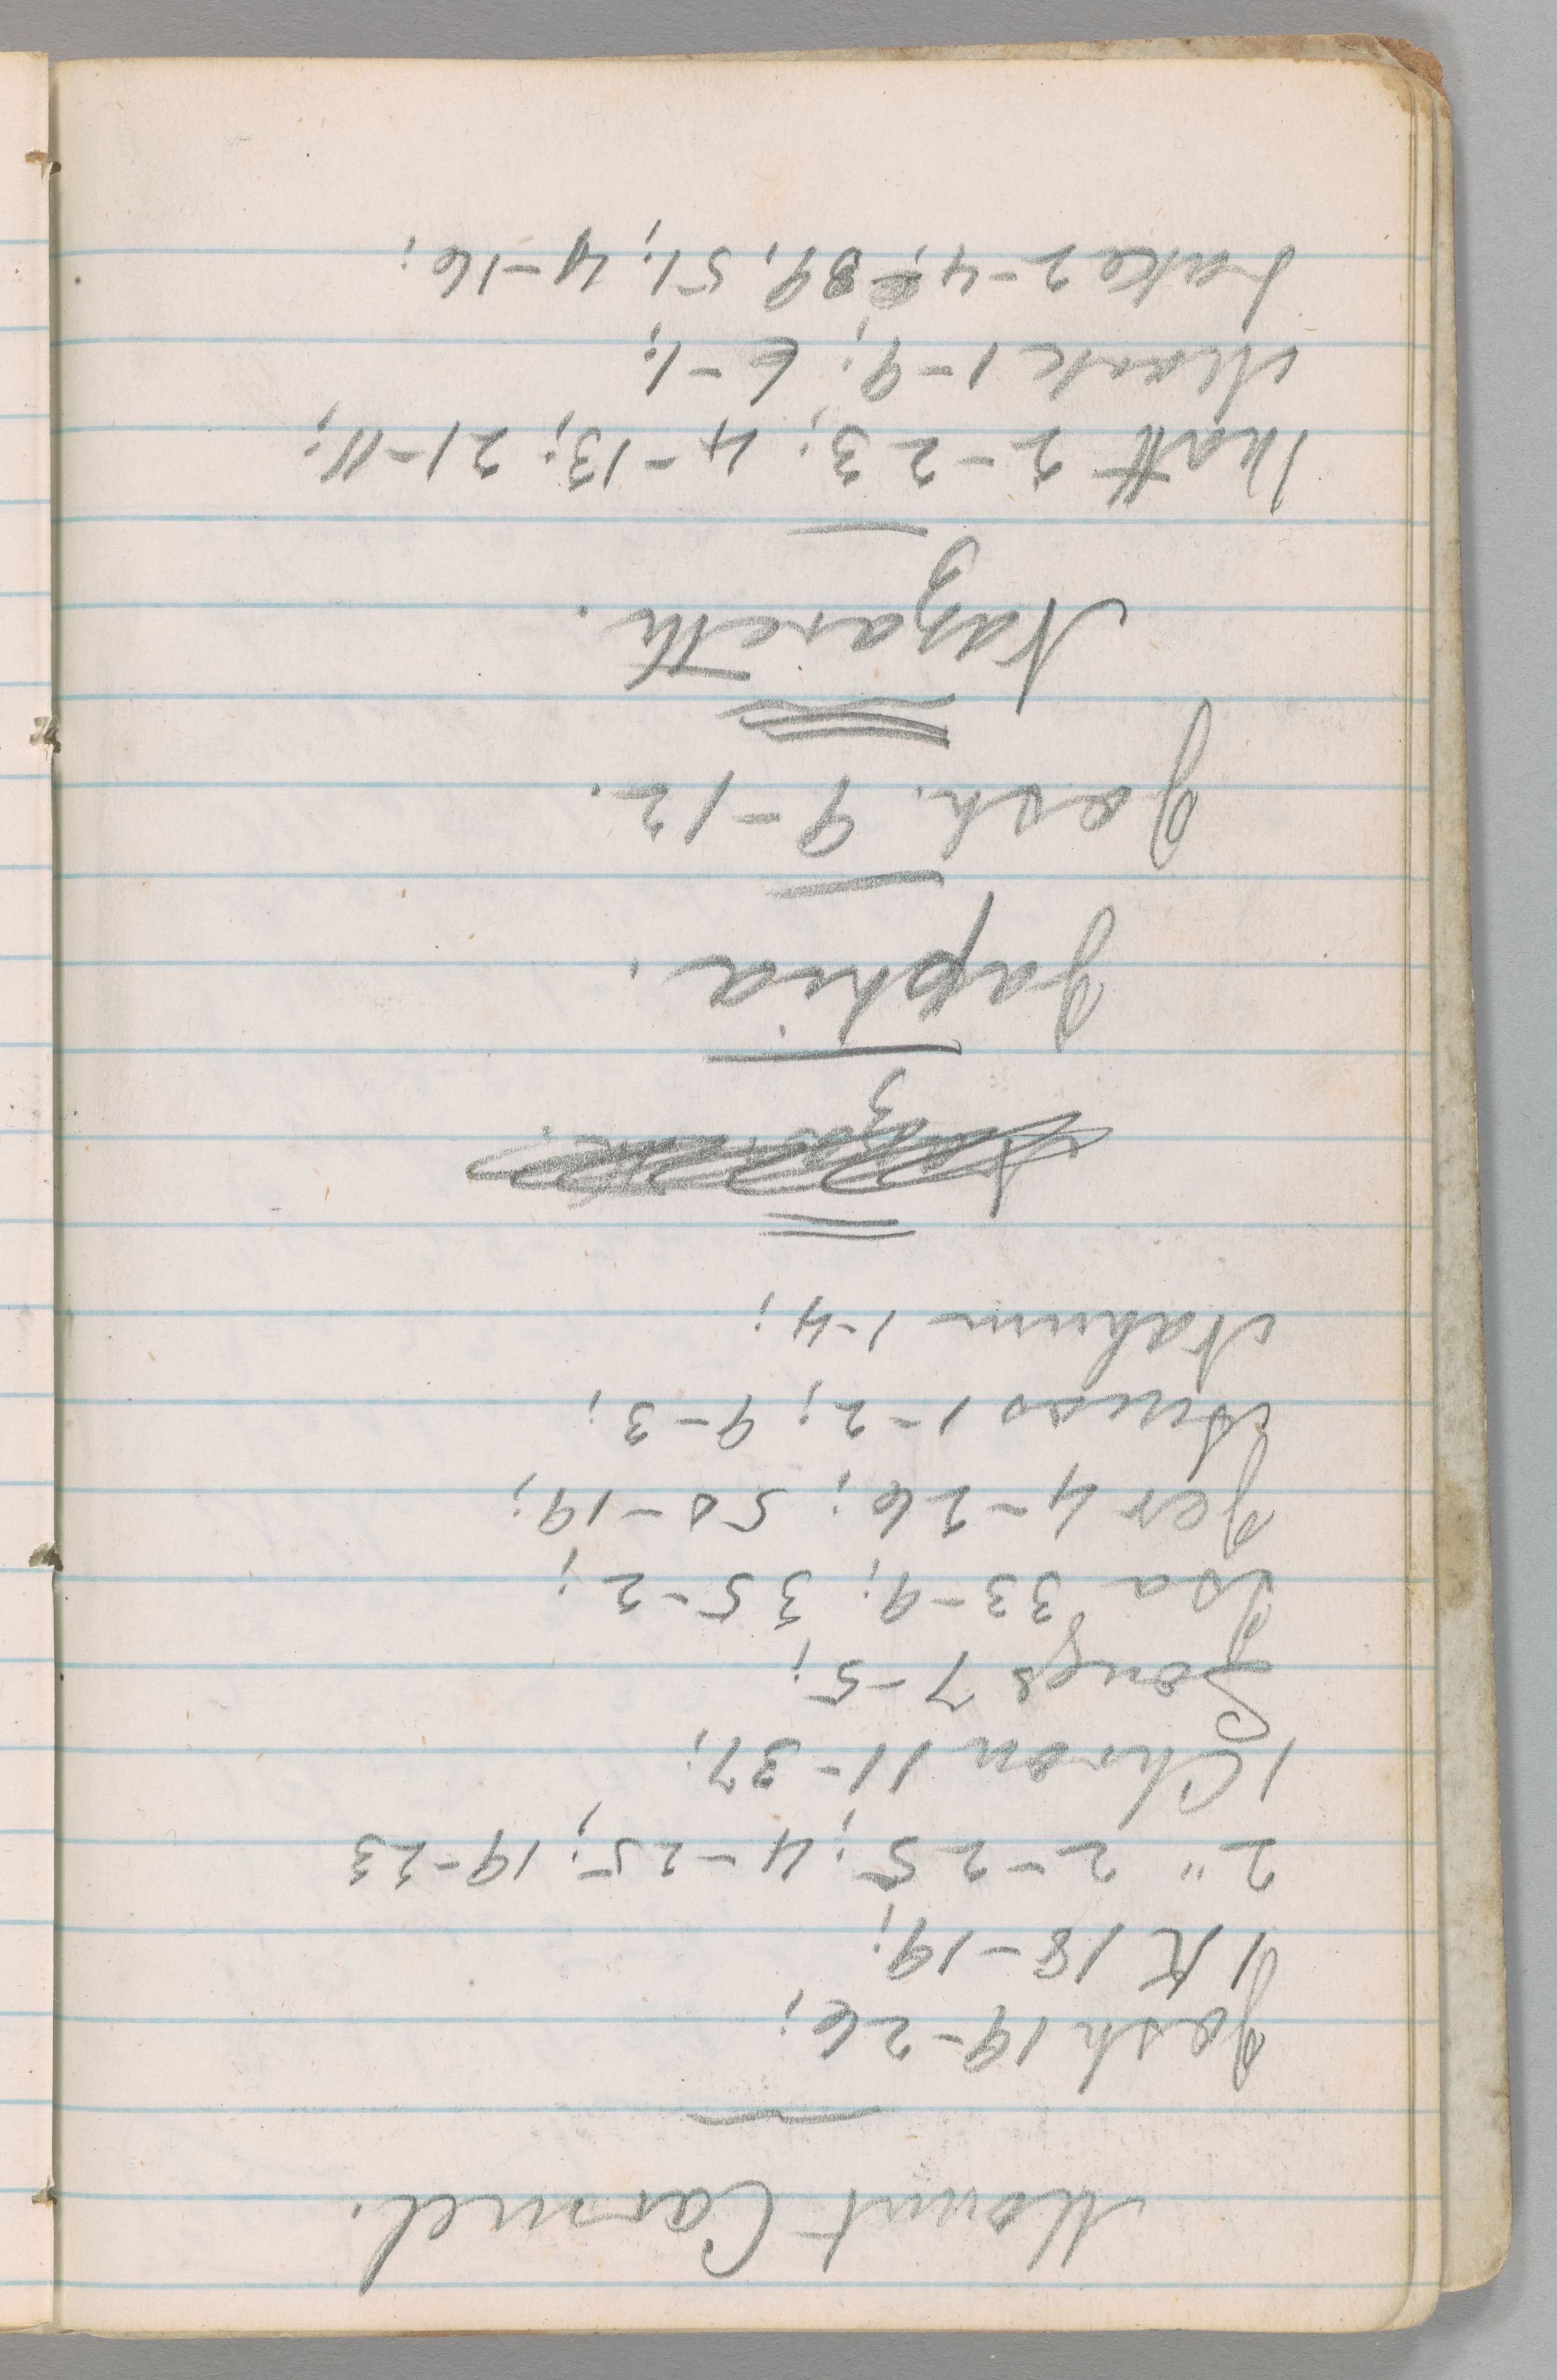 Mount Carmel.
Josh 19-26;
1 K 18-19;
2 " 2-25; 4-25; 19-23
1 Chron 11-37;
Songs 7-5;
Isa 33-9; 35-2;
Jer 4-26; 50-19;
Amos 1-2; 9-3;
Nahum 1-4;
Japhia.
Josh. 9-12.
Nazareth.
Matt 2-23; 4-13; 21-11;
Mark 1-9; 6-1;
Luke 2-4; 39, 51; 4-16;